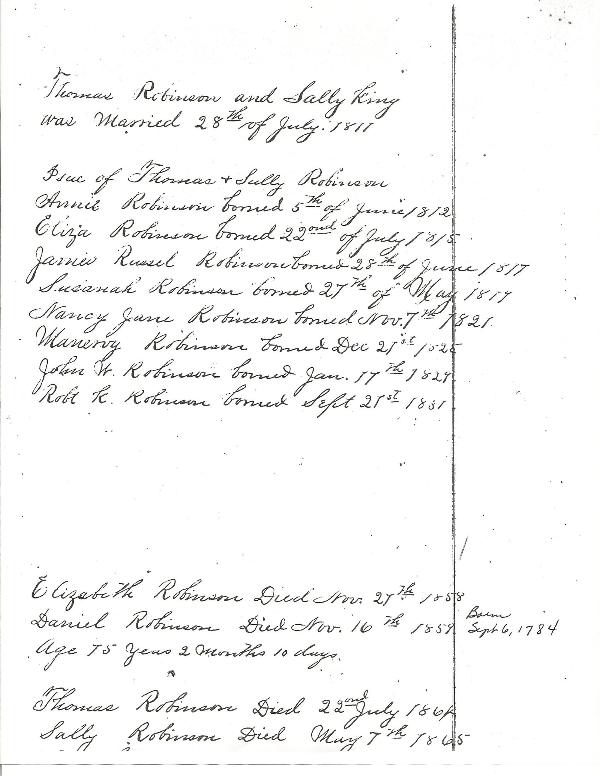 Thomas Robinson and Sally King
was Married 28th of July. 1811
Isue of Thomas + Sally Robinson
Annie Robinson borned 5th of June 1812
Eliza Robinson borned 22ond of July 1815
James Russel Robinson borned 28th of June 1817
Susanah Robinson borned 27th of May 1819
Nancy Jane Robinson borned Nov. 7th 1821
Manervy Robinson borned Dec 21st
John W. Robinson borned Jan. 17th 1829
Robt K. Robinson borned Sept 21st 1831
Elizabeth Robinson Died Nov. 27th 1858
Daniel Robinson Died Nov. 16th 1859 Born Sept 6, 1784
Age 75 Years 2 Months 10 days.
Thomas Robinson Died 22ond July 1864
Sally Robinson Died May 7th 1865